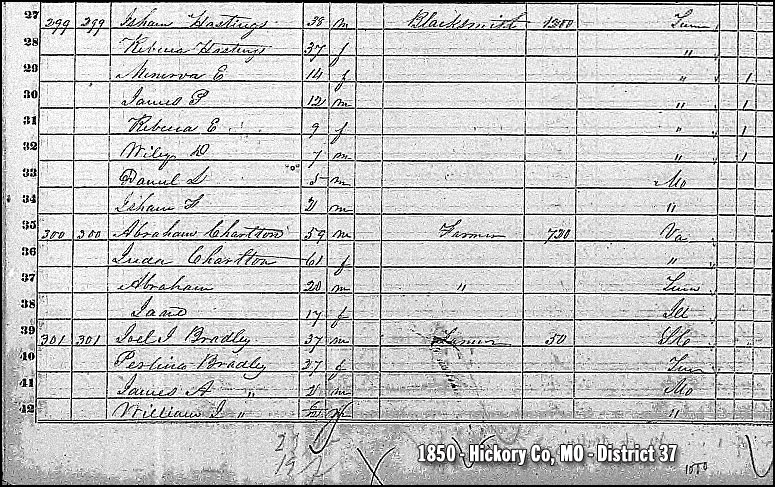 27 299 299 Isham Hastings 38 m Blacksmith 1200 Tenn
28 Rebeca Hastings 37 f "
29 Minerva E 14 f " 1
30 James P 12 m " 1
31 Rebeca E 9 f " 1
32 Wiley D 7 m " 1
33 Daniel L 5 m Mo
34 Isham F 2 m "
35 300 300 Abraham Charlton 59 m Farmer 720 Va
36 Charlton 61 f "
37 Abraham 20 m " Tenn
38 Jane 17 f Ill
39 301 301 Joel J Bradley 37 m Farmer 50
40 Bradley 27 f Tenn
41 James A " 2 m Mo
42 William J " "
1850 - Hickory Co, MO - District 37